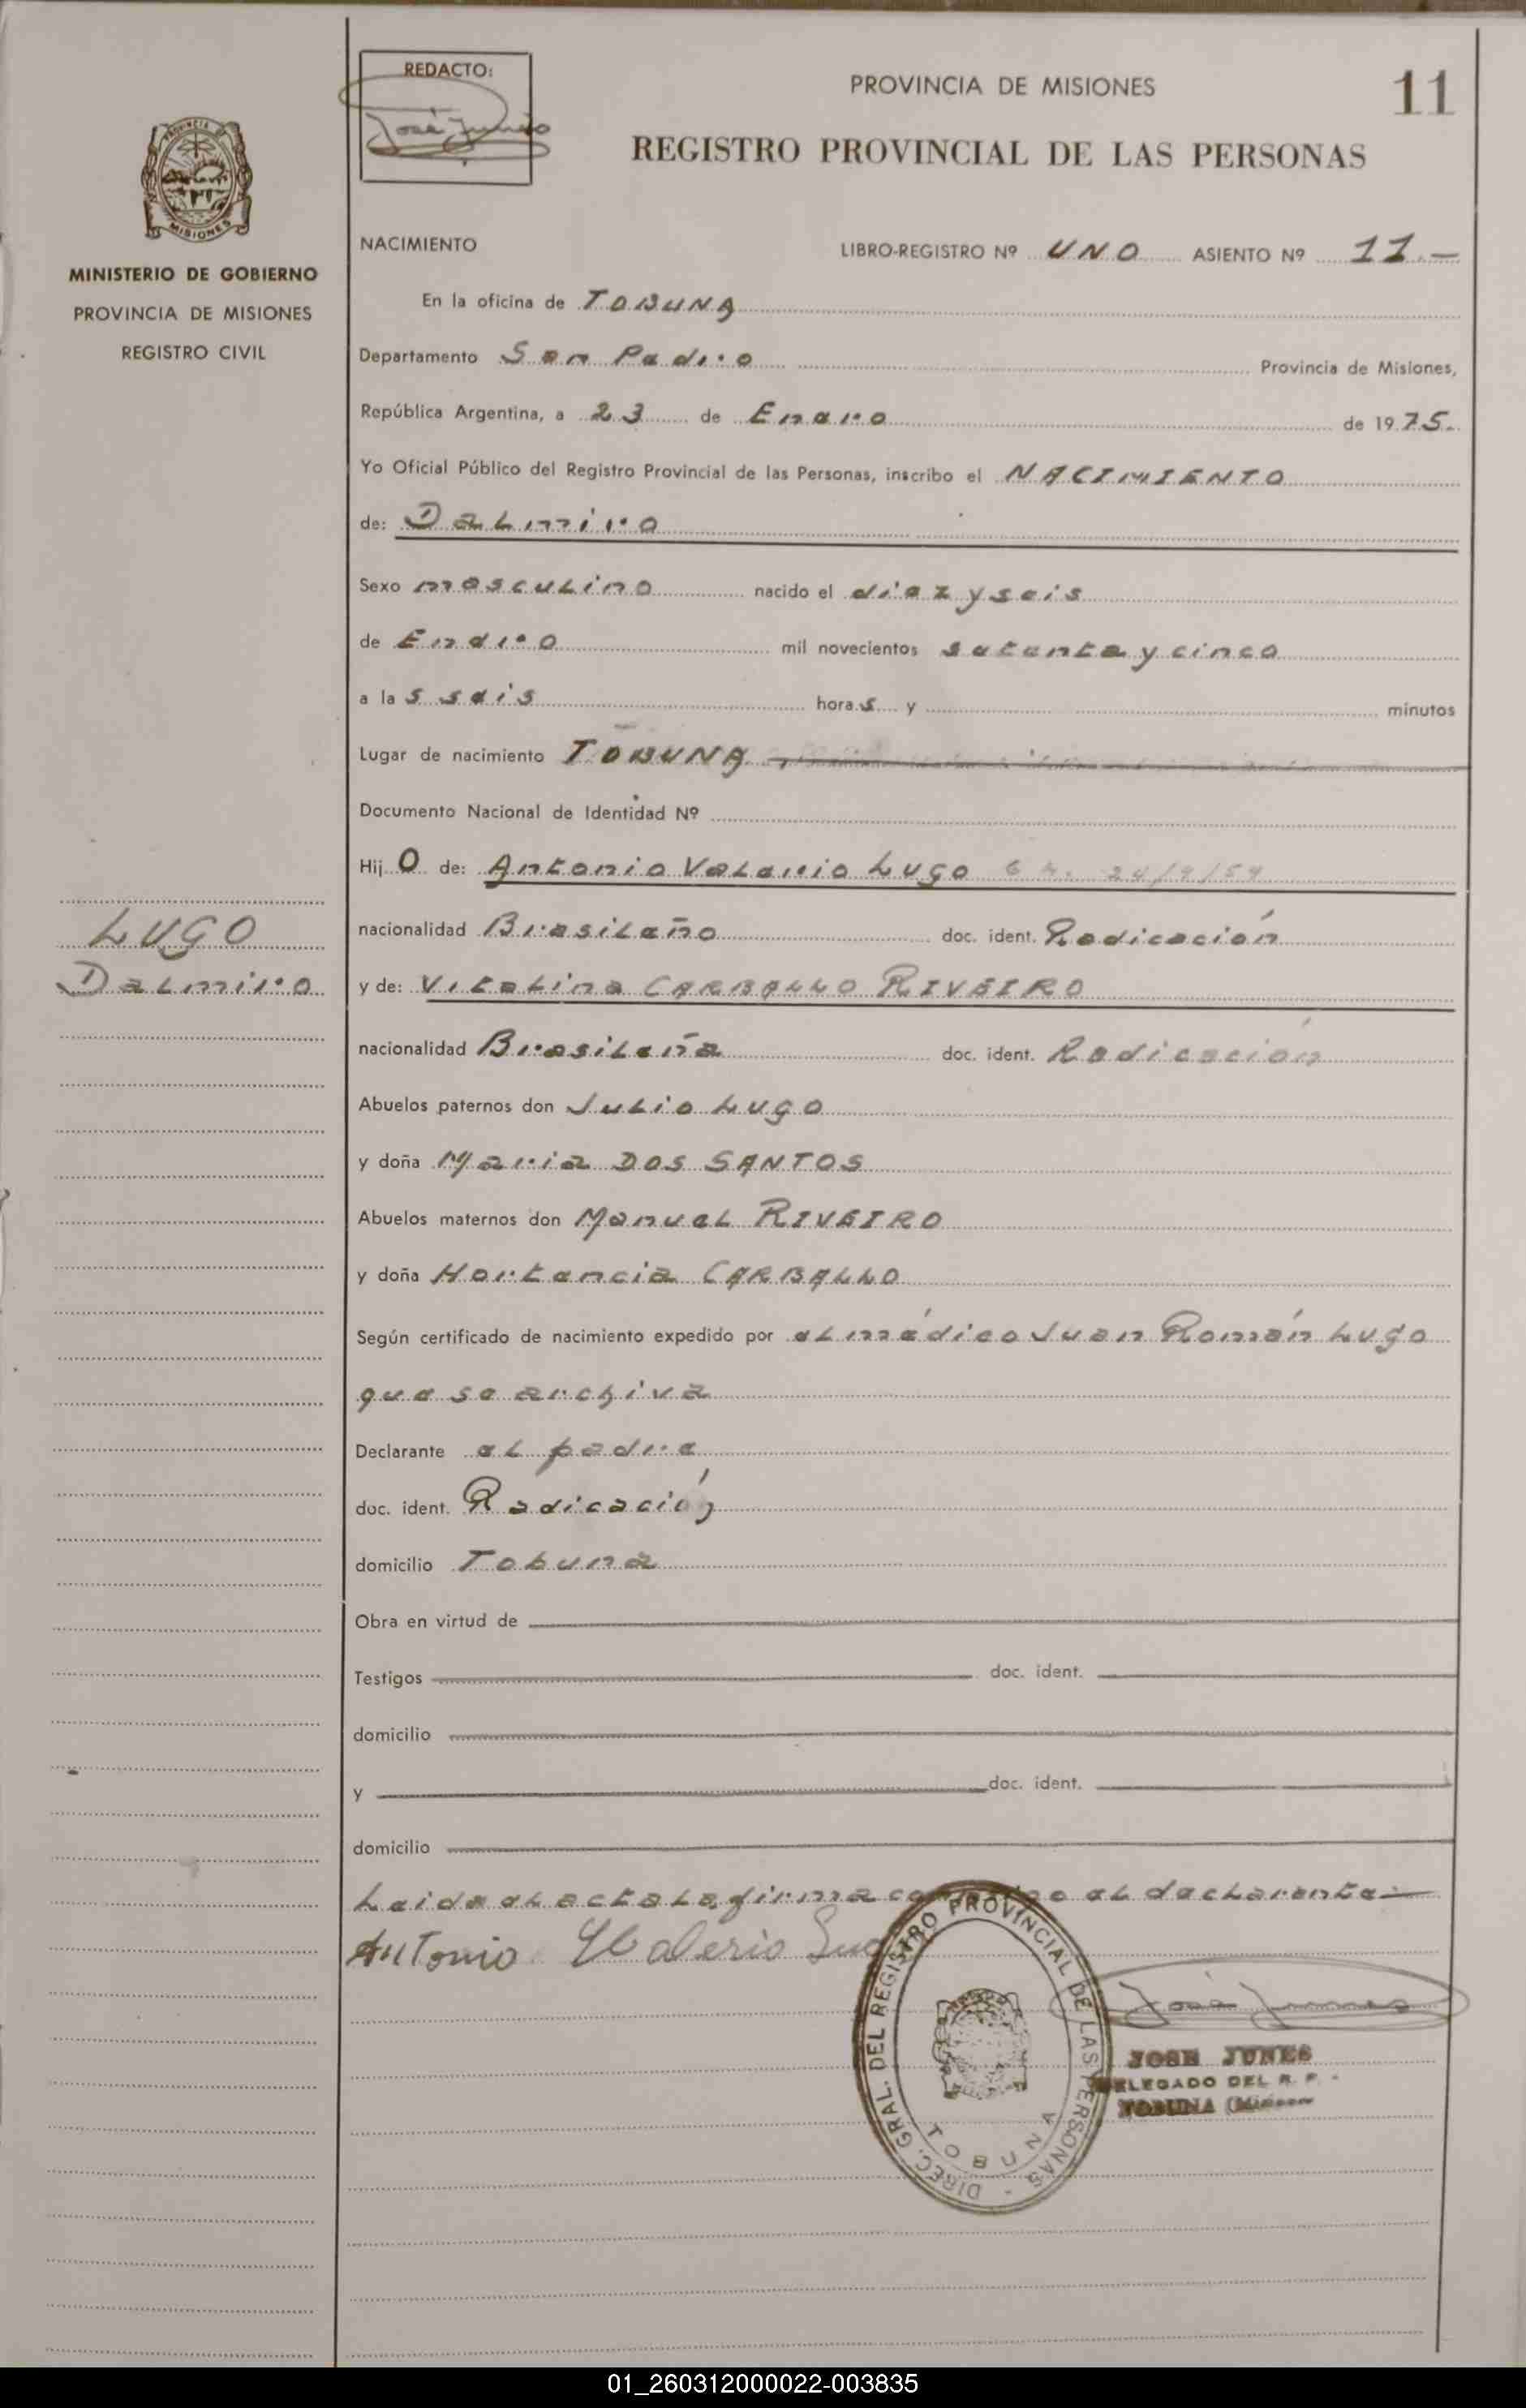 REDACTO:
José Junes
PROVINCIA DE MISIONES
11
REGISTRO PROVINCIAL DE LAS PERSONAS
PROVINCIA DE
MISIONES
MINISTERIO DE GOBIERNO
PROVINCIA DE MISIONES
REGISTRO CIVIL
NACIMIENTO LIBRO-REGISTRO Nº UNO ASIENTO Nº 11.—
En la oficina de TOBUNA
Departamento San Pedro Provincia de Misiones,
República Argentina, a 23 de Enero de 1975.
Yo Oficial Público del Registro Provincial de las Personas, inscribo el NACIMIENTO
de: Dalmiro
Sexo masculino nacido el diez y seis
de Enero mil novecientos setenta y cinco
a las seis horas y minutos
Lugar de nacimiento TOBUNA
Documento Nacional de Identidad Nº
Hijo de: Antonio Valerio Lugo 24/9/59
nacionalidad Brasileño doc. ident. Radicación
LUGO
Dalmiro
y de: Vitalina CARBALLO RIVEIRO
nacionalidad Brasileña doc. ident. Radicación
Abuelos paternos don Julio Lugo
y doña Maria DOS SANTOS
Abuelos maternos don Manuel RIVEIRO
y doña Hortencia CARBALLO
Según certificado de nacimiento expedido por el médico Juan Román Lugo
que se archiva
Declarante el padre
doc. ident. Radicación
domicilio Tobuna
Obra en virtud de
Testigos doc. ident.
domicilio
y doc. ident.
domicilio
Leida el acta la firma conmigo el declarante—
Antonio Valerio Lugo
José Junes
DIREC. GRAL. DEL REGISTRO PROVINCIAL DE LAS PERSONAS -
TOBUNA
JOSE JUNES
DELEGADO DEL R. P.
TOBUNA (Misiones
01_260312000022-003835